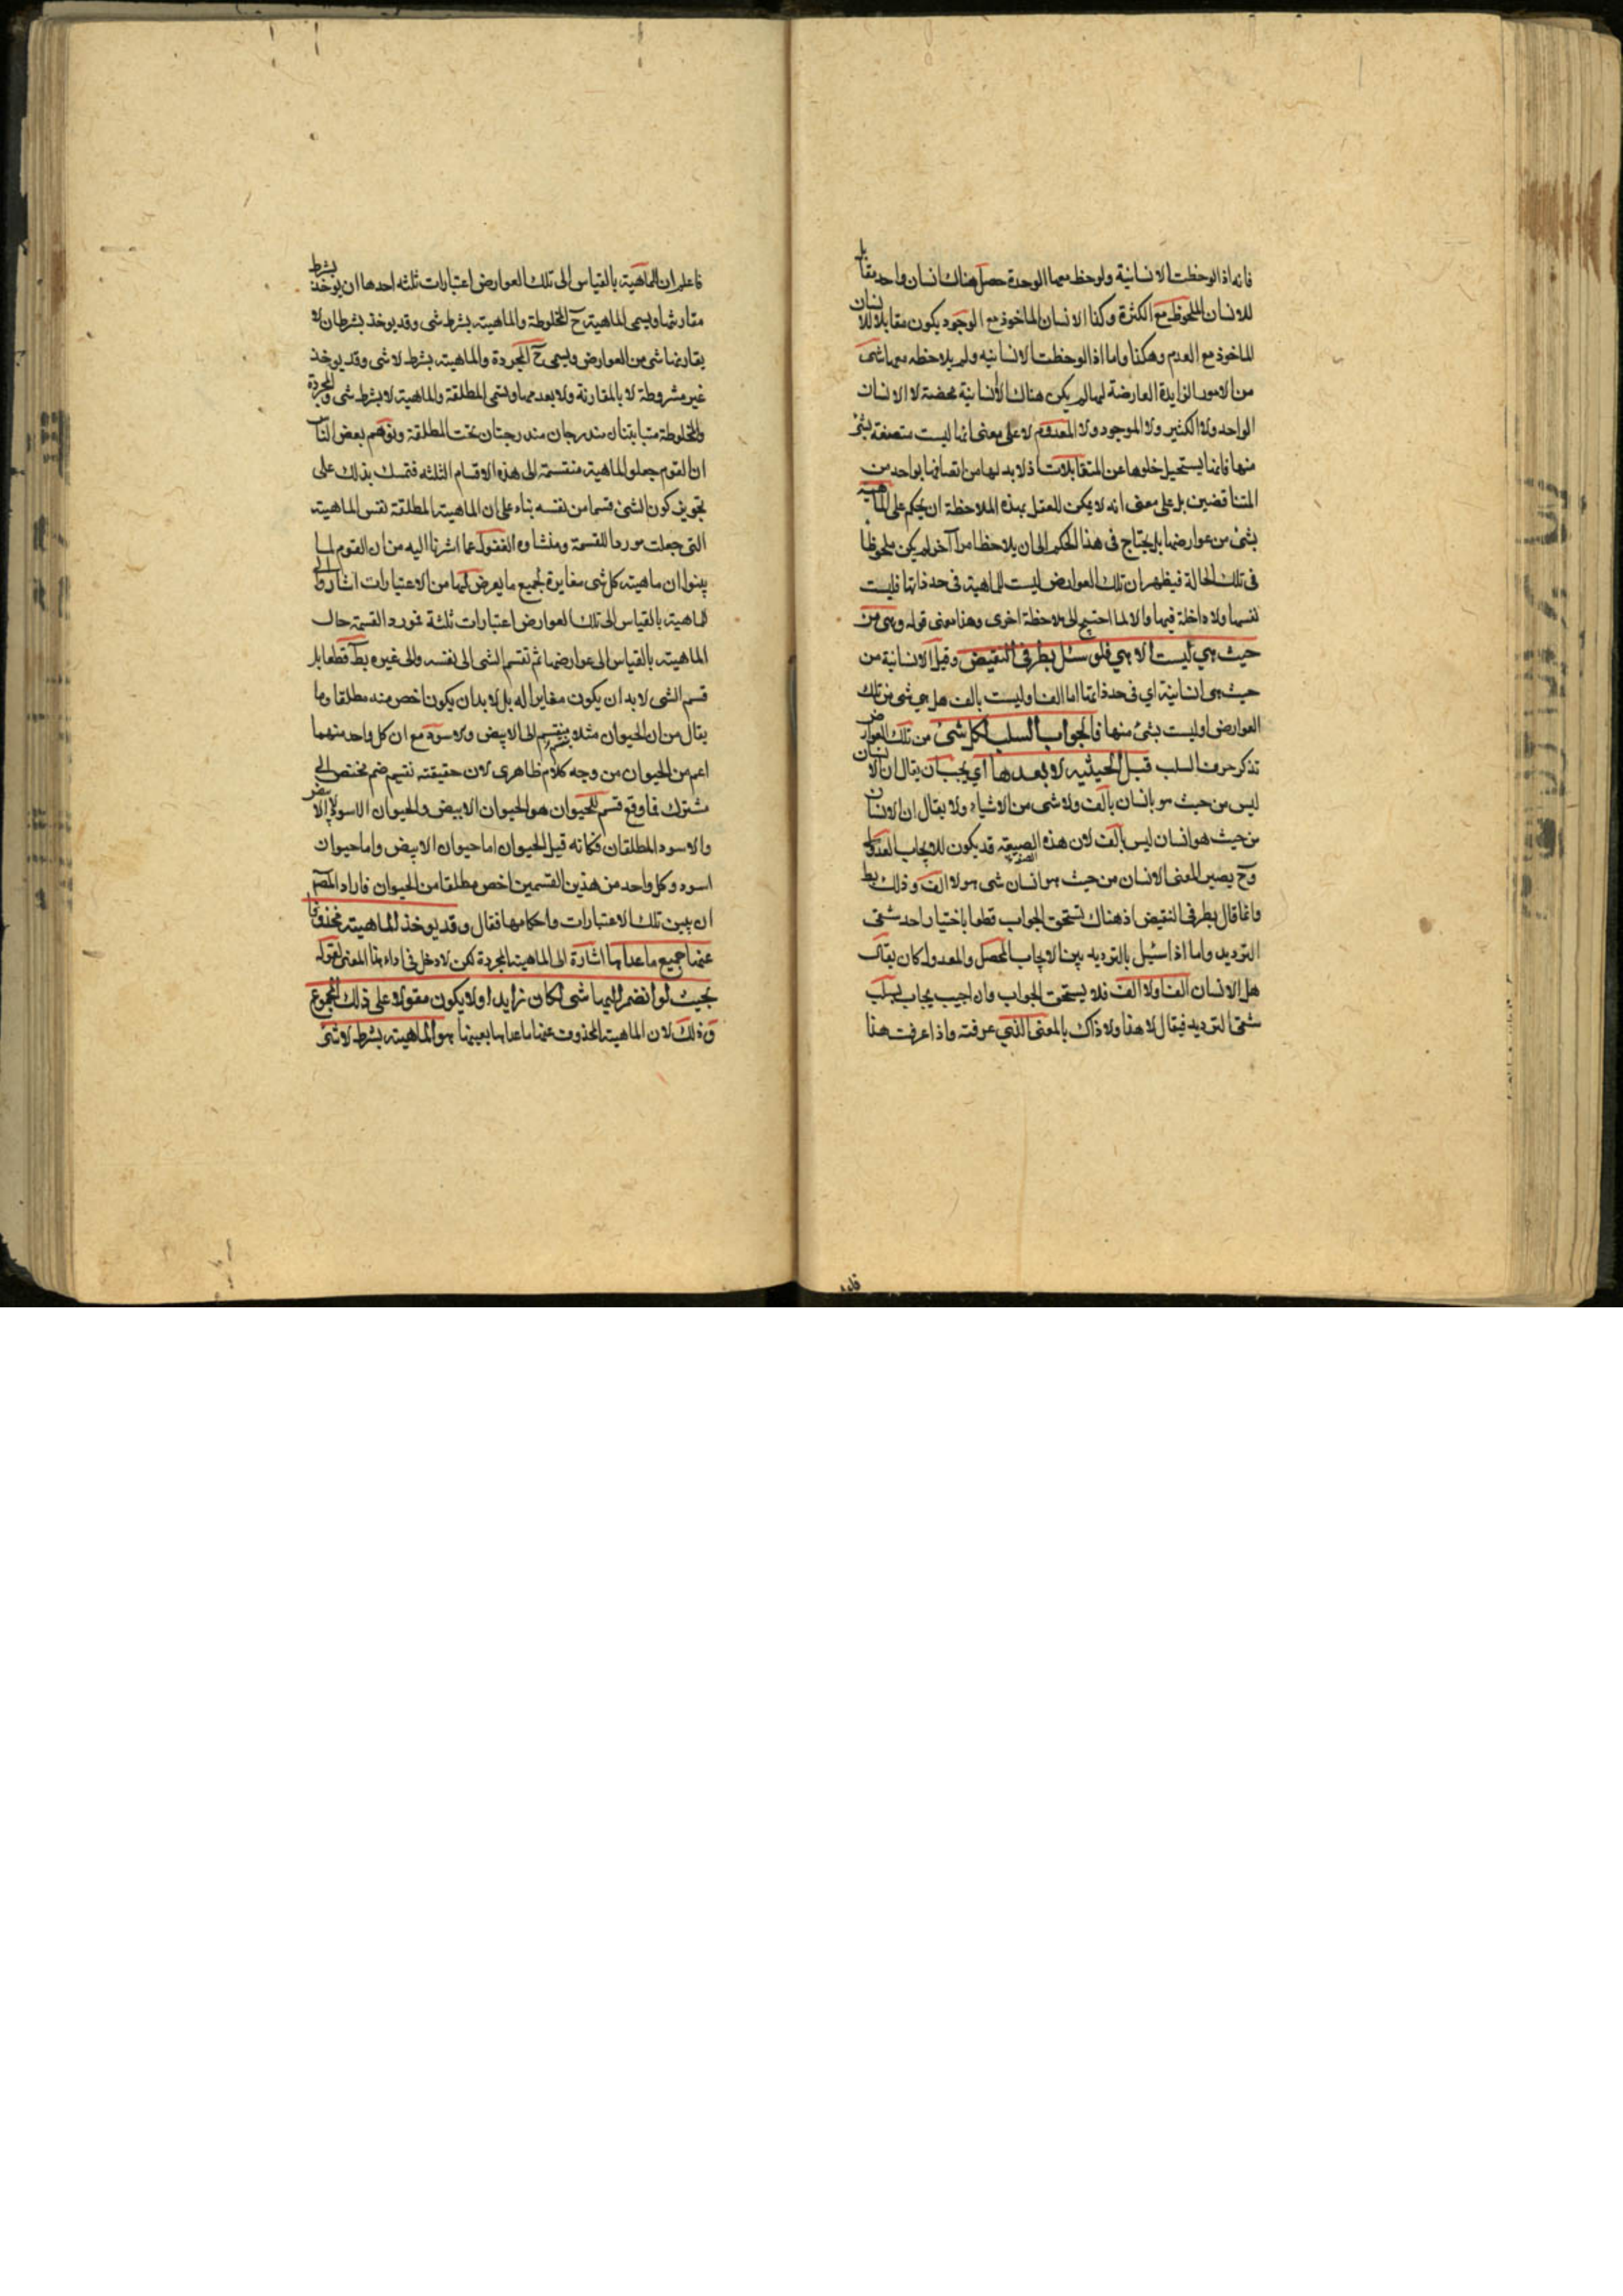 فانه اذا لوحظت الانسانية ولوحظ معها الوحدة حصل هناك انسان واحد مقابل
للانسان الملحوظ مع الكثرة وكذا الانسان الماخوذ مع الوجود يكون مقابلا للانسان
الماخوذ مع العدم وهكذا واما اذا لوحظت الانسانيه ولم يلاحظه معها شئ
من الامور الزايدة العارضة لها لم يكن هناك الا انسانية محضة لا الانسان
الواحد ولا الكثير ولا الموجود ولا المعدوم لا على معنى انها ليست متصفة بشئ
منها فانها يستحيل خلوها عن المتقابلات اذ لا بد لها من اتصافها بواحد من
المتناقضين بل على معنى انه لا يمكن للعقل بهذه الملاحظة ان يحكم على الماهية
بشئ من عوارضها بل يحتاج فى هذا الحكم الى ان يلاحظ امرا آخر لم يكن ملحوظا
فى تلك الحالة فيظهر ان تلك العوارض ليست للماهية فى حد ذاتها فليست
نفسها ولا داخلة فيها والا لما احتيج الى ملاحظة اخرى وهذا معنى قوله وهى من
حيث هي ليست الا هي فلو سئل بطرفى النقيض وقيل الانسانية من
حيث هى انسانية اي فى حد ذاتها اما الف او ليست بالف هل هي شى من تلك
العوارض او ليست بشئ منها فالجواب السلب لكل شئ من تلك العوارض
تذكر حرف السلب قبل الحيثيه لا بعدها اي يجب ان يقال ان الانسان
ليس من حيث هو بانسان بالف ولا شى من الاشياء ولا يقال ان الانسان
من حيث هو انسان ليس بالف لان هذه الصيغه قد يكون للايجاب العدولى
وح يصير المعنى الانسان من حيث هو انسان شى هو لا الف وذلك بط
وانما قال بطرفى النقيض اذ هناك يستحق الجواب قطعا باختيار احد شقى
الترديد واما اذا سئيل بالترديد بين الايجاب المحصل والمعدول كان يقال
هل الانسان الف او لا الف فلا يستحق الجواب وان اجيب يجاب بسلب
شقى الترديد فيقال لا هذا ولا ذاك بالمعنى الذي عرفته واذا عرفت هذا
فاعلم ان للماهية بالقياس الى تلك العوارض اعتبارات ثلثه احدها ان يوخذ بشرط
مقارنتها ويسمى الماهية ح المخلوطة والماهية بشرط شى وقد يوخذ بشرط ان لا
يقارنها شى من العوارض ويسمى ح المجردة والماهية بشرط لا شى وقد يوخذ
غير مشروطة لا بالمقارنة ولا بعدمها وتسمى المطلقة والماهية لا بشرط شى والمجردة
والمخلوطة متباينتان مندرجتان تحت المطلقة وتوهم بعض الناس
ان القوم جعلوا الماهية منقسمة الى هذه الاقسام الثلثه فتمسك بذلك على
تجويز كون الشئ قسما من نفسه بناء على ان الماهية المطلقة نفس الماهية
التى جعلت موردا للقسمة ومنشاوه الغفول عما اشرنا اليه من ان القوم لما
بينوا ان ماهية كل شى مغايرة لجميع ما يعرض لها من الاعتبارات اشاروا الى ان
للماهية بالقياس الى تلك العوارض اعتبارات ثلثة فمورد القسمة حال
الماهية بالقياس الى عوارضها ثم تقسيم الشى الى نفسه والى غيره بط قطعا بل
قسم الشى لا بد ان يكون مغايرا له بل لا بد ان يكون اخص منه مطلقا وما
يقال من ان الحيوان مثلا ينقسم الى الابيض والاسود مع ان كل واحد منهما
اعم من الحيوان من وجه كلام ظاهرى لان حقيقة تقسيم ضم مختص الى
مشترك فما وقع قسم للحيوان هو الحيوان الابيض والحيوان الاسود لا الابيض
والاسود المطلقان فكانه قيل الحيوان اما حيوان الابيض واما حيوان
اسود وكل واحد من هذين القسمين اخص مطلقا من الحيوان فاراد المصم
ان يبين تلك الاعتبارات واحكامها فقال وقد يوخذ الماهية محذوفا
عنها جميع ما عداها اشارة الى الماهية المجردة لكن لا دخل فى اداء هذا المعنى لقوله
بحيث لو انضم اليها شى لكان زايدا ولا يكون مقولا على ذلك المجموع
وذلك لان الماهية المحذوف عنها ما عداها بعينها هو الماهية بشرط لا شئ